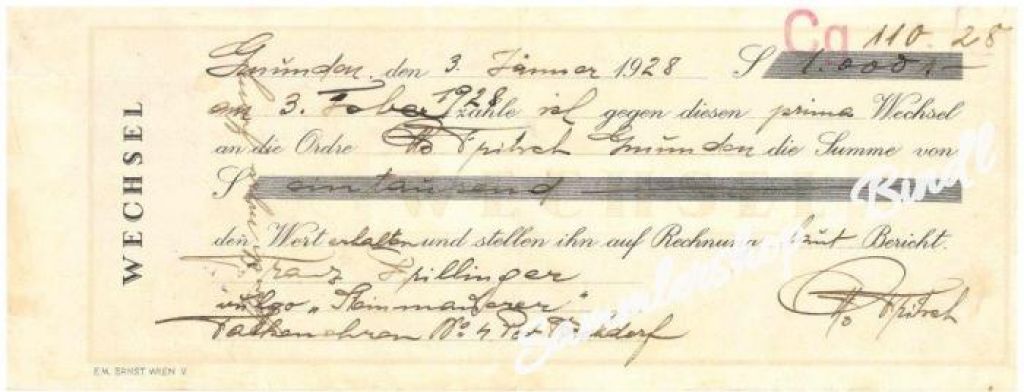 Cg 110.28
Gmunden, den 3. Jänner 1928 S 1.000.-
am 3. Feber 1928 zahle ich gegen diesen prima Wechsel
an die Ordre Fritsch Gmunden die Summe von
S eintausend
den Wert erhalten und stellen ihn auf Rechnung laut Bericht.
Franz Spillinger
vulgo „Steinmaurer"
Falkenohren No 4
Fritsch
WECHSEL
WECHSEL
Sammlershop Bindl
E.M. ERNST WIEN V.